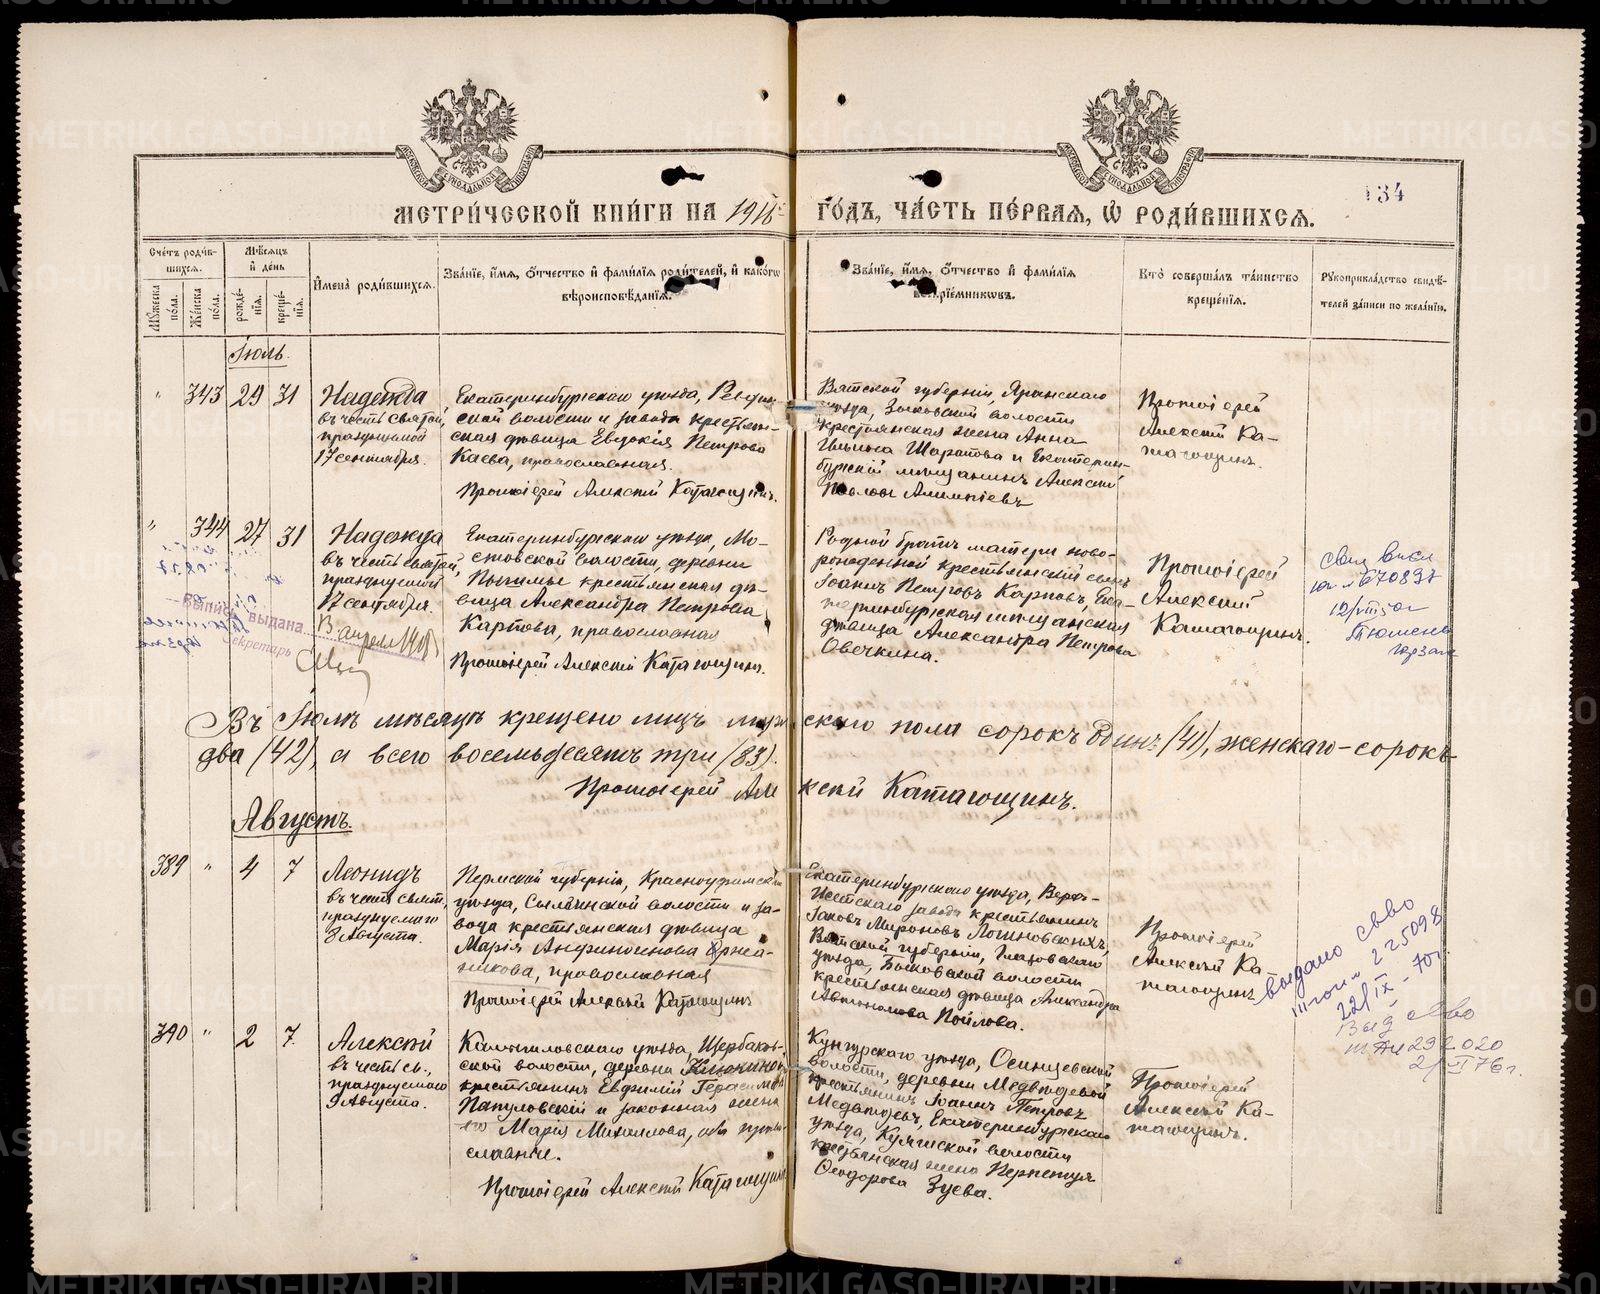 134
МЕТРИ́ЧЕСКОЙ КНИ́ГИ НА 1916 ГО́ДЪ, ЧА́СТЬ ПЕ́РВАЯ, Ѡ РОДИ́ВШИХСЯ.
Сче́тъ роди́в-
шихся.
Му́жеска по́ла.
Же́нска по́ла.
Мѣ́сяцъ
и҆ де́нь
рожде́-
нїя.
креще́-
нїя.
И҆мена̀ роди́вшихся.
Зва́нїе, и҆́мя, ѻ҆́тчество и҆ фами́лїя роди́телей, и҆ како́гѡ
вѣроисповѣ́данїя.
Зва́нїе, и҆́мя, ѻ҆́тчество и҆ фами́лїя
воспрїе́мникѡвъ.
Кто̀ соверша́лъ та́инство
креще́нїя.
Рукоприкла́дство свидѣ́-
телей за́писи по жела́нїю.
Іюль.
" 343 29 31
Надежда
въ честь святой,
празднуемой
17 сентября.
Екатеринбургскаго уѣзда, Ревдин-
ской волости и завода крестьян-
ская дѣвица Евдокія Петрова
Каева, православная.
Протоіерей Алексій Катагощинъ.
Вятской губерніи, Яранскаго
уѣзда, волости
крестьянская жена Анна
Ильина Шарапова и Екатерин-
бургскій мѣщанинъ Алексій
Павловъ Алимпіевъ
Протоіерей
Алексій Ка-
тагощинъ.
" 344 27 31
Надежда
въ честь святой,
празднуемой
17 сентября.
Екатеринбургскаго уѣзда, Мо-
стовской волости, деревни
крестьянская дѣ-
вица Александра Петрова
Карпова, православная
Протоіерей Алексій Катагощинъ.
Родной братъ матери ново-
рожденной крестьянскій сынъ
Іоаннъ Петровъ Карповъ, Ека-
теринбургская мѣщанская
дѣвица Александра Петрова
Овечкина.
Протоіерей
Алексій
Катагощинъ.
выпись выдана
Секретарь
Тюмень
Въ Іюлѣ мѣсяцѣ крещено лицъ мужскаго пола сорокъ одинъ (41), женскаго-сорокъ
два (42), а всего восемьдесятъ три (83).
Протоіерей Алексій Катагощинъ.
Августъ.
389 " 4 7
Леонидъ
въ честь свят.
празднуемаго
8 Августа.
Пермской губерніи, Красноуфимскаго
уѣзда, Сылвинской волости и за-
вода крестьянская дѣвица
Марія Андриянова
православная
Протоіерей Алексій Катагощинъ
Екатеринбургскаго уѣзда, Верх-
Исетскаго завода крестьянинъ
Іаковъ Мироновъ Логиновскихъ,
Вятской губерніи, Глазовскаго
уѣзда, волости
крестьянская дѣвица Александра
Автономова Пойлова.
Протоіерей
Алексій Ка-
тагощинъ
выдано св-во
III 225098
22/IX - 70г.
390 " 2 7
Алексій
въ честь св.,
празднуемаго
9 Августа.
Камышловскаго уѣзда, Щербаков-
ской волости, деревни
крестьянинъ Евфимій Герасимовъ
Папуловскій и законная жена
его Марія Михаилова, оба право-
славные.
Протоіерей Алексій Катагощинъ
Кунгурскаго уѣзда, Осинцевской
волости, деревни Медвѣдевой
крестьянинъ Іоаннъ Петровъ
Медвѣдевъ, Екатеринбургскаго
уѣзда, волости
крестьянская жена Перпетуя
Ѳеодорова Зуева.
Протоіерей
Алексій Ка-
тагощинъ.
292020
METRIKI.GASO-URAL.RU